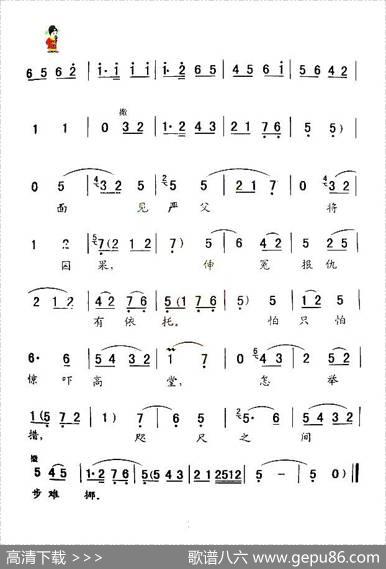 6 5 6 2 | i· i i i | i·2 6 5 | 4 5 6 i | 5 6 4 2 |
撤
1 1 | 0 3 2 | 1·4 3 | 2 1 7 6 | 5 5) |
0 5 | 4 3 2 5 | 2 5 5 | 2 1 7 | 0 4 3 2 |
面 见 严 父 将
1 2 | 5 7 (2 1 2 | 7) 5 | 6 4 2 | 5 2 5 |
因 果, 伸 冤 报 仇
2 1 2 | 4 2 7 6 | 5 (1 7 6 | 5) 5 | 1 2 5 |
有 依 托。 怕 只 怕
6· 6 | 5 4 3 2 | 1 7 | 0 5 6 4 3 | 2 5 |
惊 吓 高 堂, 怎 举
1 (5 7 2 | 1) 7 | 6 5 | 2 5·6 | 5 4 3 2 |
措, 咫 尺 之 间
撤
5 4 5 | 1·2 7 6 | 5 (5 4 3 | 2 1 2512 | 5 – | 5 0) ‖
步 难 挪.
高清下载 >>> 歌谱八六 www.gepu86.com